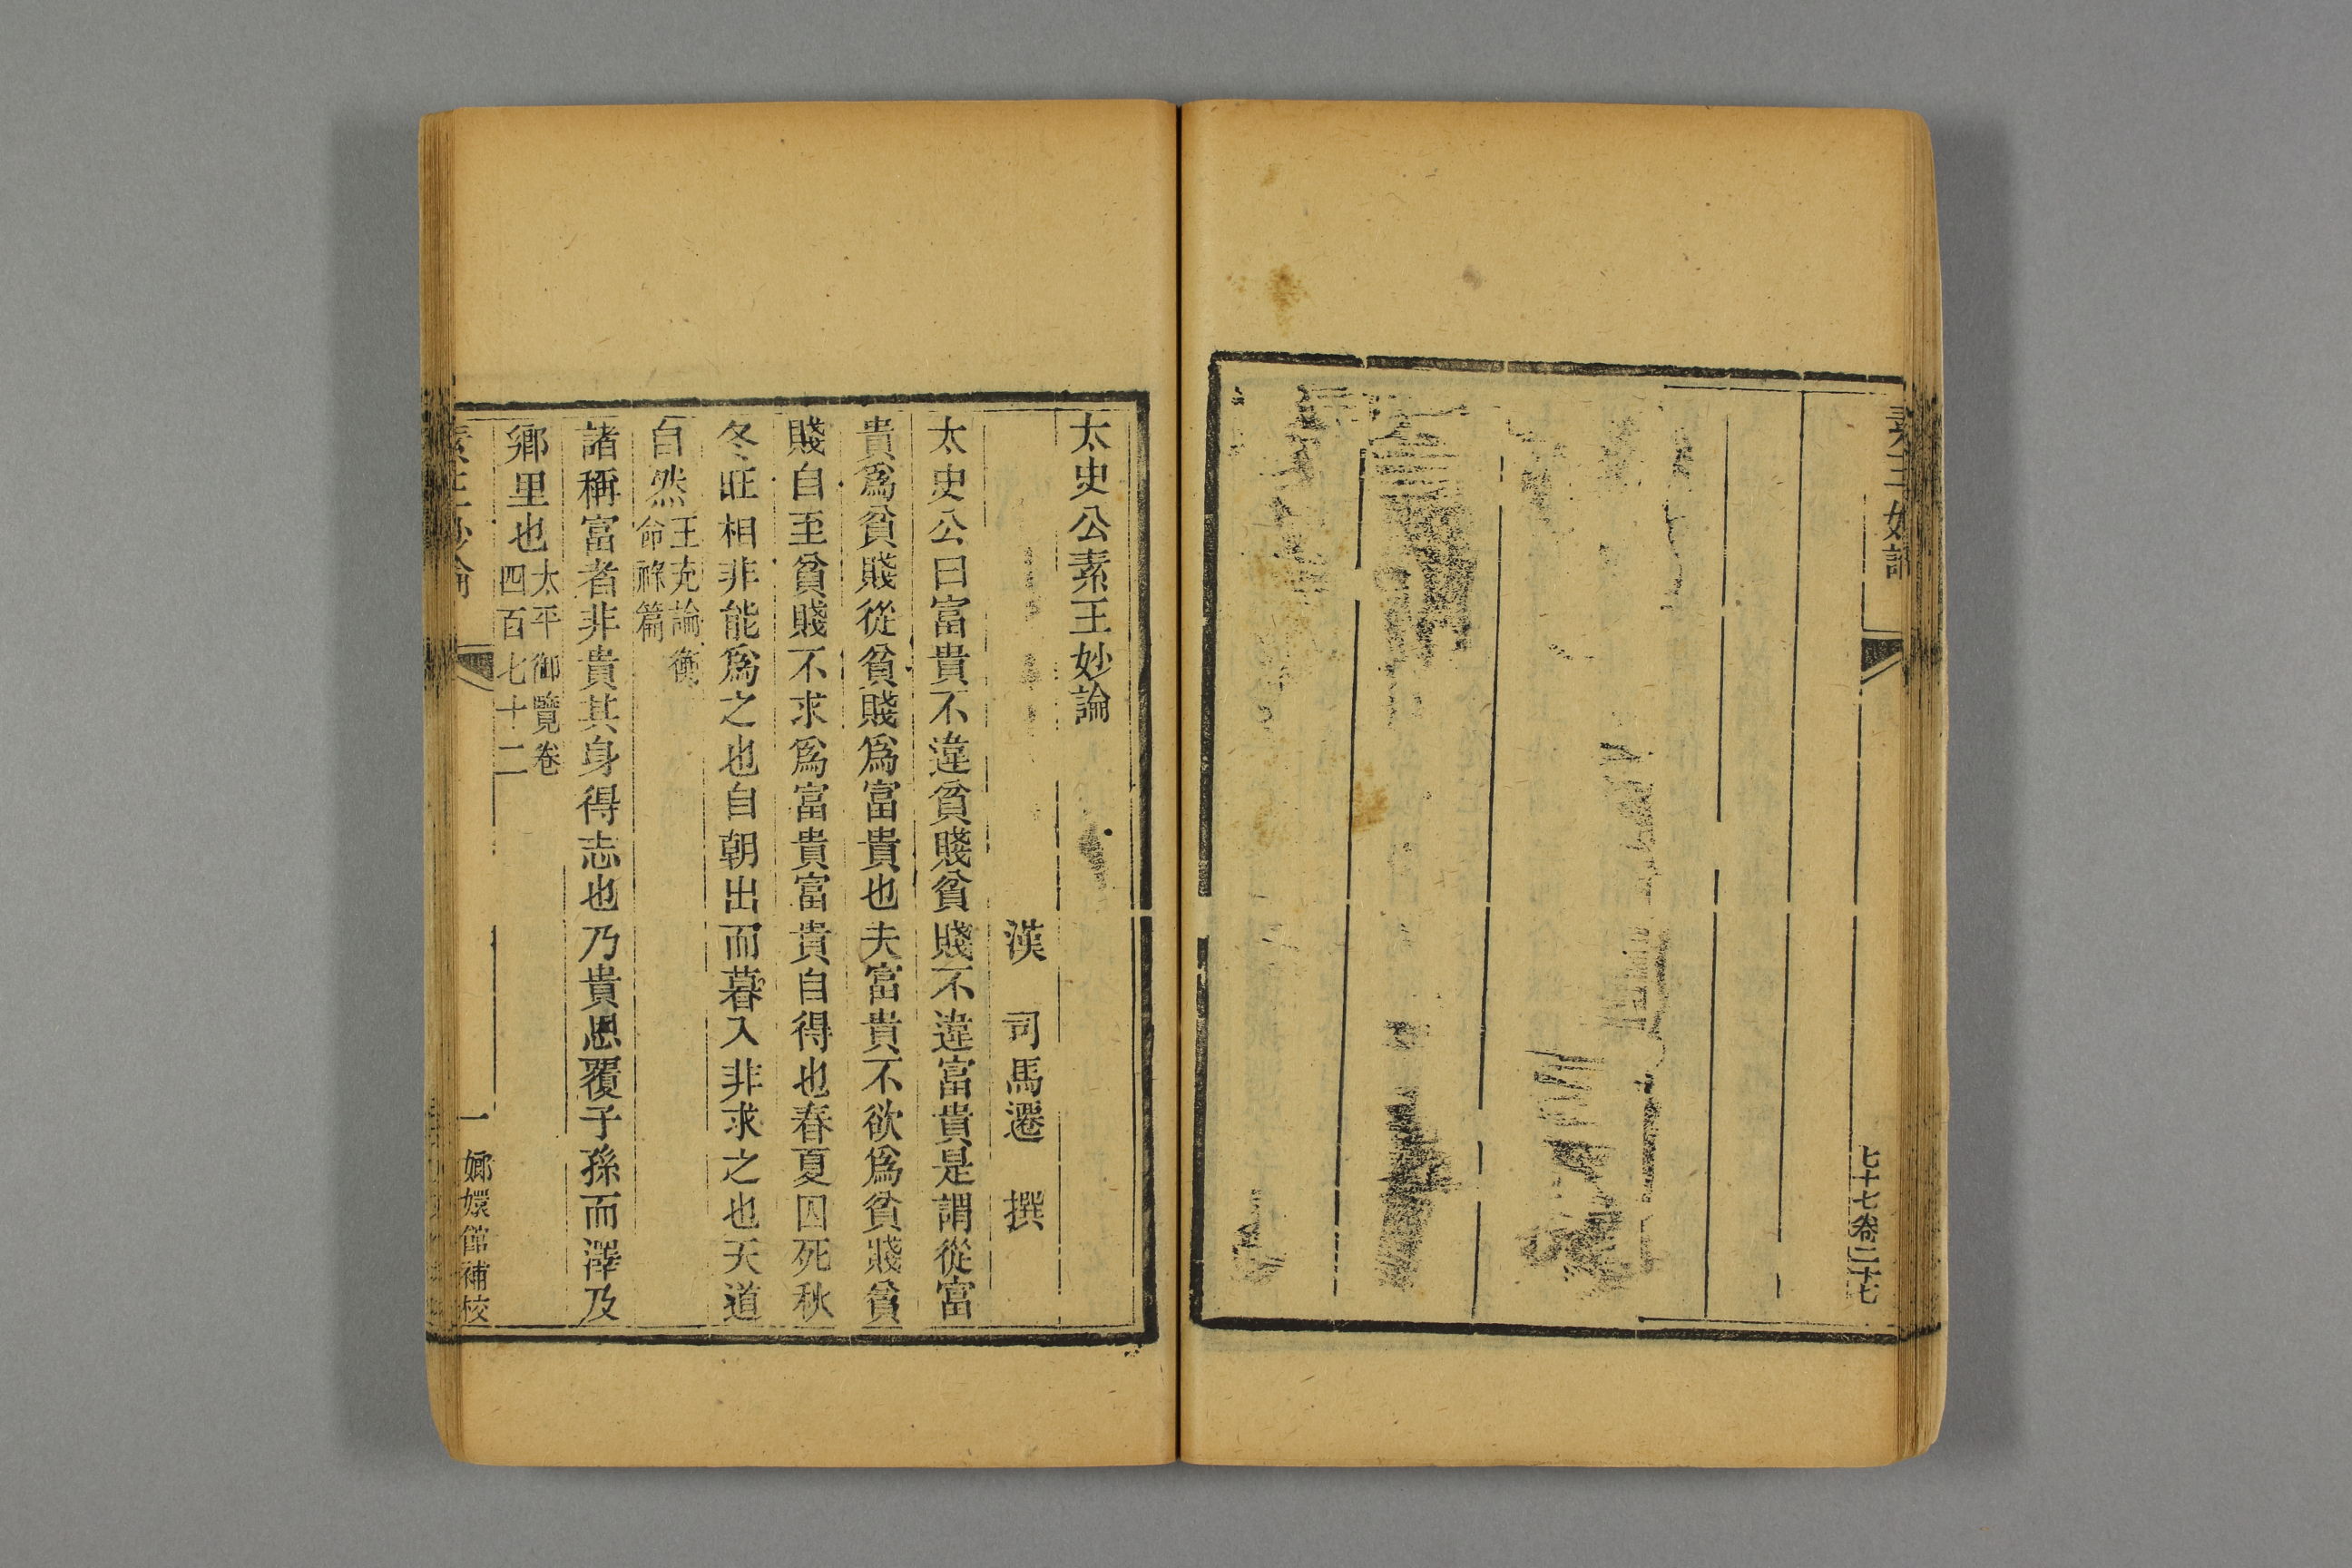 素王妙論
七十七卷二十七
太史公素王妙論
漢 司馬遷 撰
太史公曰富貴不違貧賤貧賤不違富貴是謂從富
貴爲貧賤從貧賤爲富貴也夫富貴不欲爲貧賤貧
賤自至貧賤不求爲富貴富貴自得也春夏囚死秋
冬旺相非能爲之也自朝出而暮入非求之也天道
自然王充論衡
命祿篇
諸稱富者非貴其身得志也乃貴恩覆子孫而澤及
鄉里也太平御覽卷
四百七十二
素王妙論
一
嫏嬛館補校